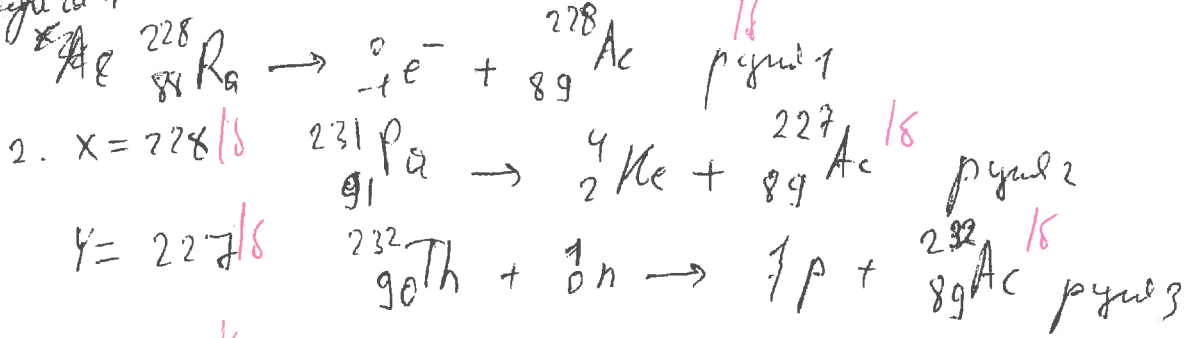 ²²⁸₈₈Ra → ⁰₋₁e⁻ + ²²⁸₈₉Ac 1б
2. X = 228 1б ²³¹₉₁Pa → ⁴₂He + ²²⁷₈₉Ac 1б
Y = 227 1б ²³²₉₀Th + ¹₀n → ¹₁p + ²³²₈₉Ac 1б